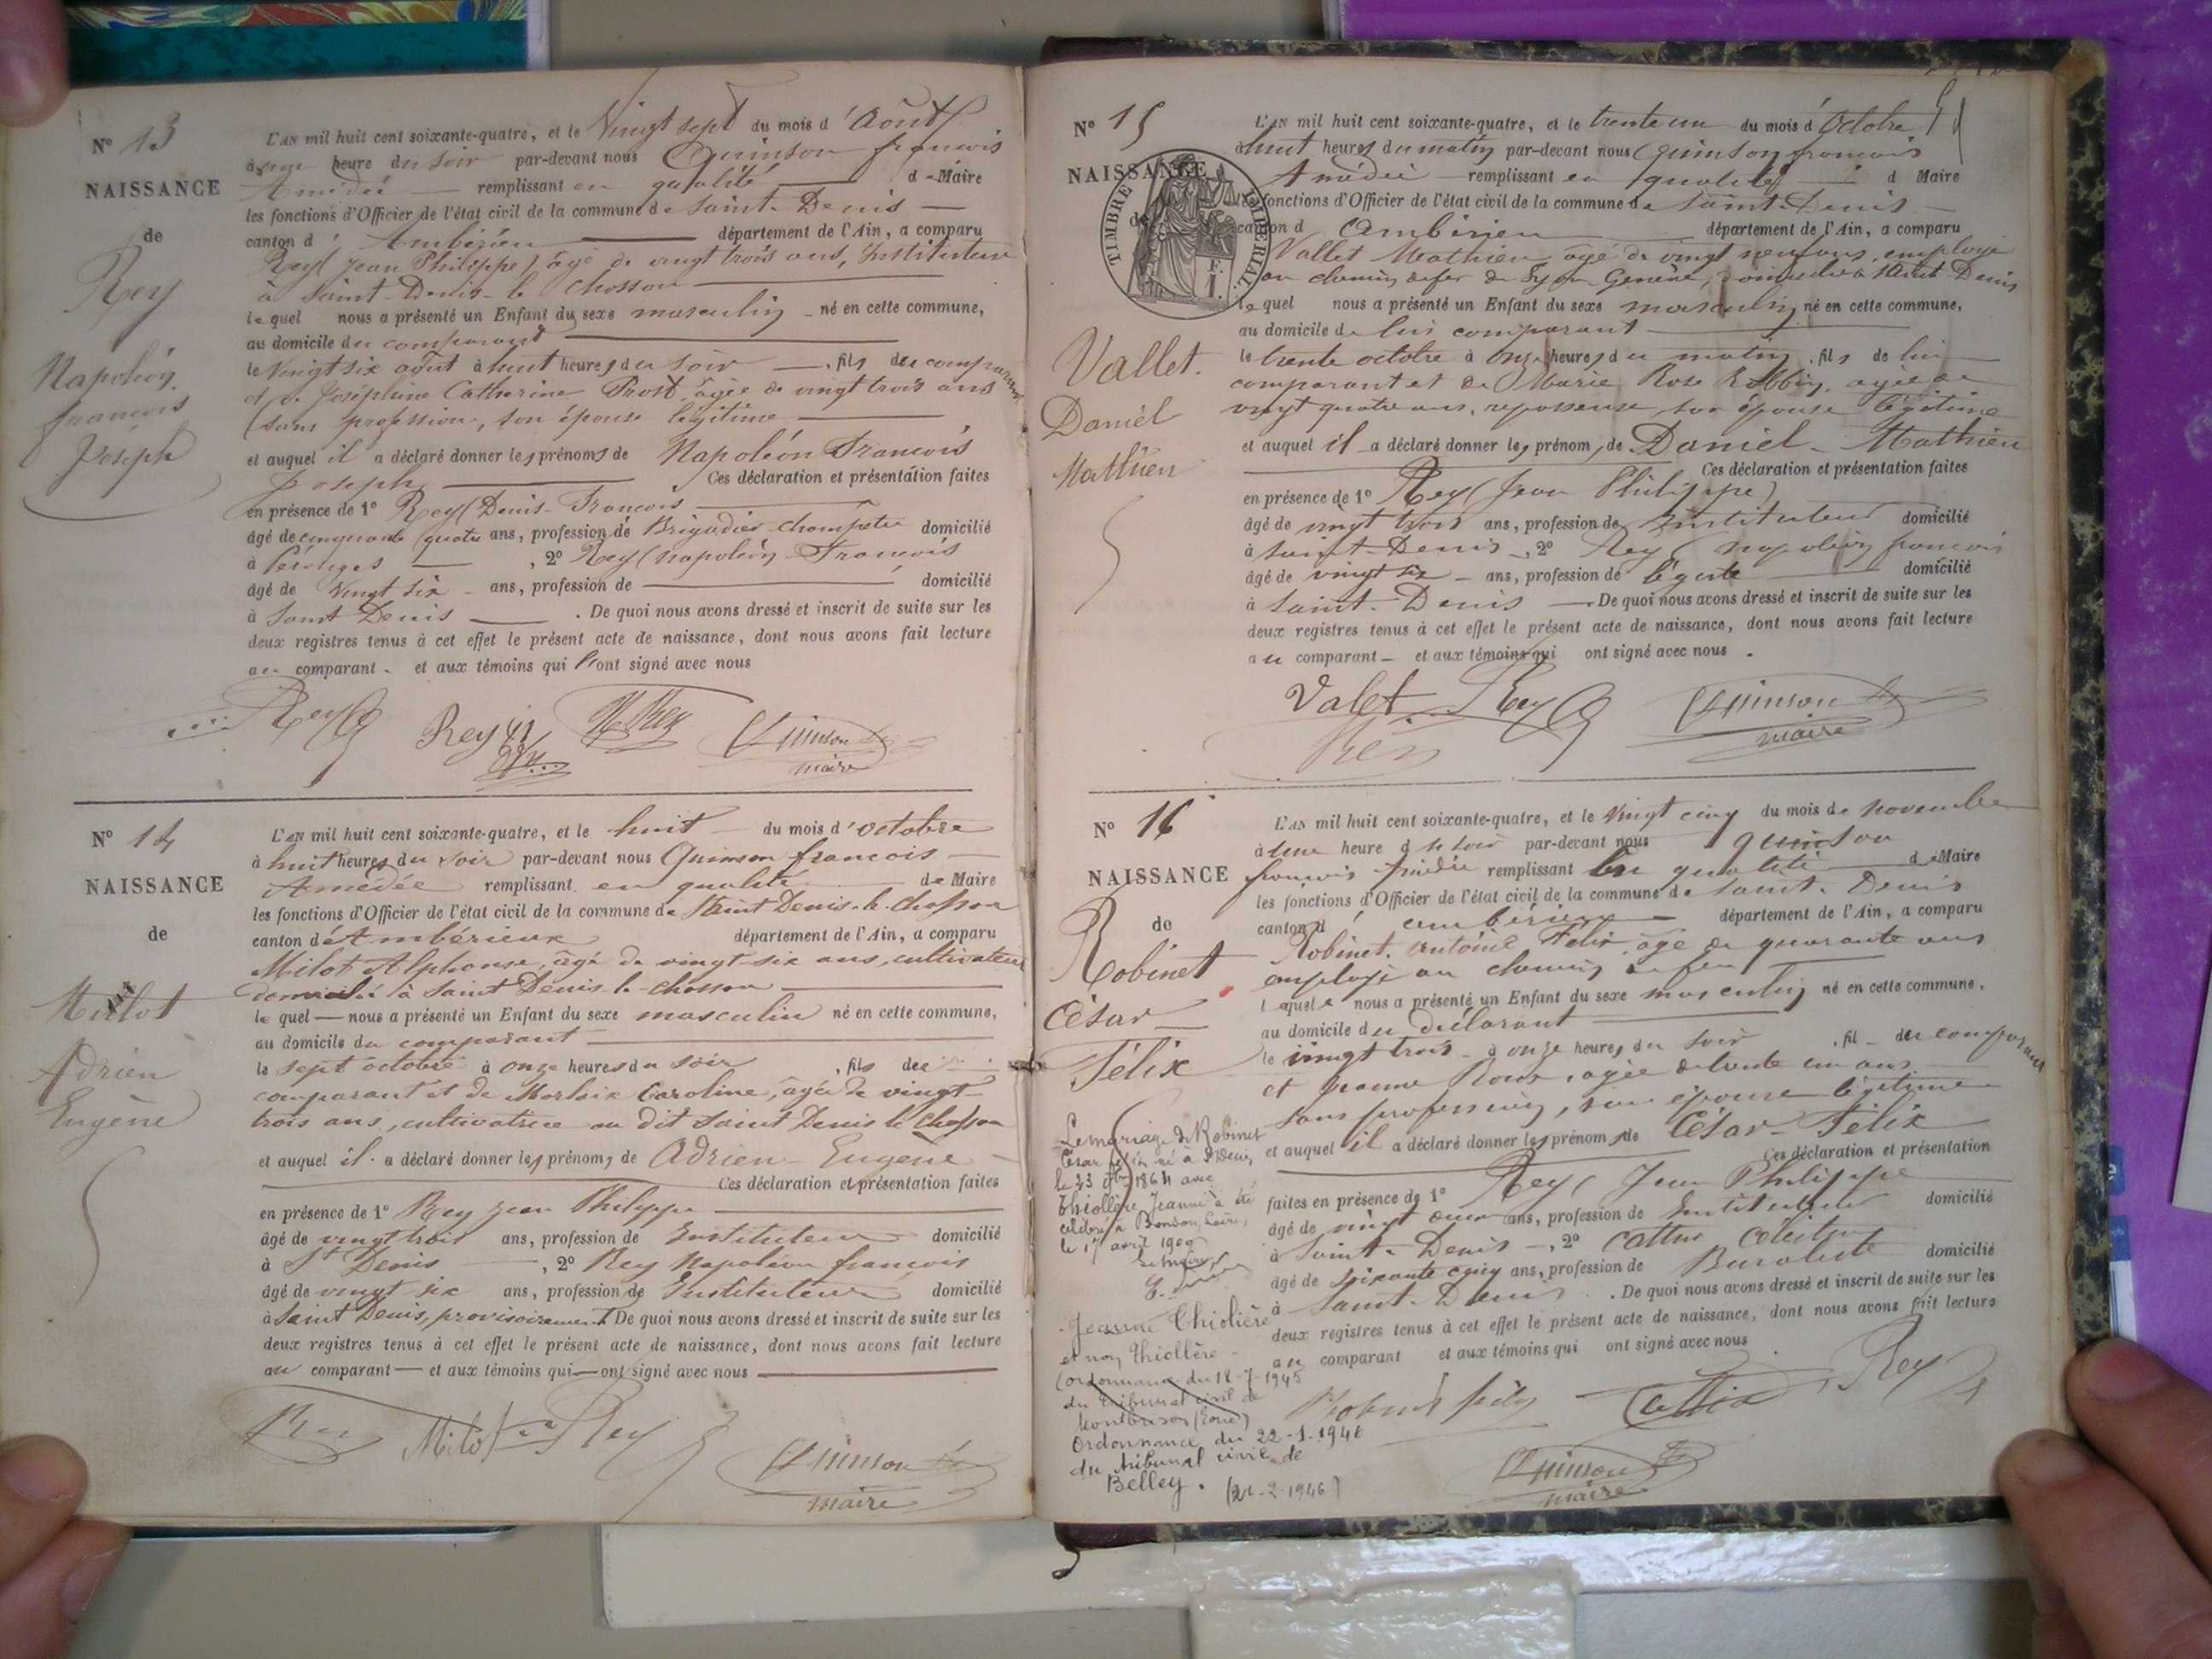 N° 13
NAISSANCE
de
Rey
Napoléon
francois
Joseph
L'AN mil huit cent soixante-quatre, et le Vingt sept du mois d'Août
à une heure du soir par-devant nous Quinson francois
Amédée remplissant en qualité de Maire
les fonctions d'Officier de l'état civil de la commune de Saint-Denis
canton d'Ambérieu département de l'Ain, a comparu
Rey (Jean Philippe) âgé de vingt trois ans, Instituteur
à Saint-Denis-le Chosson
lequel nous a présenté un Enfant du sexe masculin né en cette commune,
au domicile du comparant
le vingt six août à huit heures du soir, fils du comparant
et de Joséphine Catherine Prost, âgée de vingt trois ans
sans profession, son épouse légitime
et auquel il a déclaré donner les prénoms de Napoléon Francois
Joseph Ces déclaration et présentation faites
en présence de 1° Rey (Denis-Francois
âgé de cinquante quatre ans, profession de Brigadier-champêtre domicilié
à Pérouges, 2° Rey (Napoléon Francois
âgé de Vingt six ans, profession de domicilié
à Saint Denis. De quoi nous avons dressé et inscrit de suite sur les
deux registres tenus à cet effet le présent acte de naissance, dont nous avons fait lecture
au comparant et aux témoins qui l'ont signé avec nous
Rey Rey Rey Quinson
maire
N° 14
NAISSANCE
de
Milot
Adrien
Eugène
L'AN mil huit cent soixante-quatre, et le huit du mois d'octobre
à huit heures du soir par-devant nous Quinson francois
Amédée remplissant en qualité de Maire
les fonctions d'Officier de l'état civil de la commune de Saint Denis-le-Chosson
canton d'Ambérieux département de l'Ain, a comparu
Milot Alphonse, âgé de vingt-six ans, cultivateur
domicilié à Saint Denis-le-chosson
lequel nous a présenté un Enfant du sexe masculin né en cette commune,
au domicile du comparant
le sept octobre à onze heures du soir, fils de
comparant et de Morlaix Caroline, âgée de vingt-
trois ans, cultivatrice au dit Saint Denis le Chosson
et auquel il a déclaré donner les prénoms de Adrien-Eugène
Ces déclaration et présentation faites
en présence de 1° Rey Jean Philippe
âgé de vingt trois ans, profession de Instituteur domicilié
à St Denis, 2° Rey Napoléon francois
âgé de vingt-six ans, profession de Instituteur domicilié
à Saint Denis, provisoirement De quoi nous avons dressé et inscrit de suite sur les
deux registres tenus à cet effet le présent acte de naissance, dont nous avons fait lecture
au comparant et aux témoins qui ont signé avec nous
Rey Milot Rey Quinson
maire
N° 15
NAISSANCE
de
TIMBRE IMPERIAL
Vallet
Daniel
Mathieu
L'AN mil huit cent soixante-quatre, et le trente un du mois d'Octobre
à huit heures du matin par-devant nous Quinson francois
Amédée remplissant en qualité de Maire
les fonctions d'Officier de l'état civil de la commune de Saint-Denis
canton d'Ambérieu département de l'Ain, a comparu
Vallet Mathieu, âgé de vingt neuf ans, employé
au chemin de fer de Lyon-Genève, domicilié à Saint-Denis
lequel nous a présenté un Enfant du sexe masculin né en cette commune,
au domicile de lui comparant
le trente octobre à onze heures du matin, fils de lui
comparant et de Marie Rose Robbin, agée de
vingt quatre ans, repasseuse son épouse légitime
et auquel il a déclaré donner les prénoms de Daniel-Mathieu
Ces déclaration et présentation faites
en présence de 1° Rey (Jean Philippe)
âgé de vingt trois ans, profession de Instituteur domicilié
à Saint-Denis, 2° Rey (Napoléon francois
âgé de vingt six ans, profession de domicilié
à Saint-Denis De quoi nous avons dressé et inscrit de suite sur les
deux registres tenus à cet effet le présent acte de naissance, dont nous avons fait lecture
au comparant et aux témoins qui ont signé avec nous.
Valet Rey Quinson
Rey maire
N° 16
NAISSANCE
de
Robinet
César
Félix
L'AN mil huit cent soixante-quatre, et le vingt cinq du mois de novembre
à une heure du soir par-devant nous quinson
francois Amédée remplissant en qualité de Maire
les fonctions d'Officier de l'état civil de la commune de Saint-Denis
canton d'ambérieux département de l'Ain, a comparu
Robinet Antoine Felix, âgé de quarante ans
employé au chemin de fer
lequel nous a présenté un Enfant du sexe masculin né en cette commune,
au domicile du déclarant
le vingt trois à onze heures du soir, fil du comparant
et jeanne Roux, agée de trente un ans
sans profession, son épouse légitime
et auquel il a déclaré donner les prénoms de César-Félix
Ces déclaration et présentation
faites en présence de 1° Rey (Jean Philippe
âgé de vingt ans, profession de Instituteur domicilié
à Saint-Denis, 2°
âgé de soixante cinq ans, profession de Buraliste domicilié
à Saint-Denis. De quoi nous avons dressé et inscrit de suite sur les
deux registres tenus à cet effet le présent acte de naissance, dont nous avons fait lecture
au comparant et aux témoins qui ont signé avec nous
Rey
Quinson
maire
Le mariage de Robinet
César félix né à St Denis
le 23 9bre 1864 avec
Thiollère Jeanne a été
célébré à
le 17 avril 1909
Jeanne Thiolière
et non Thiollère
(ordonnance du 18-7-1945
du tribunal civil de
Montbrison (Loire)
Ordonnance du 22-1-1946
du tribunal civil de
Belley. (21-2-1946)